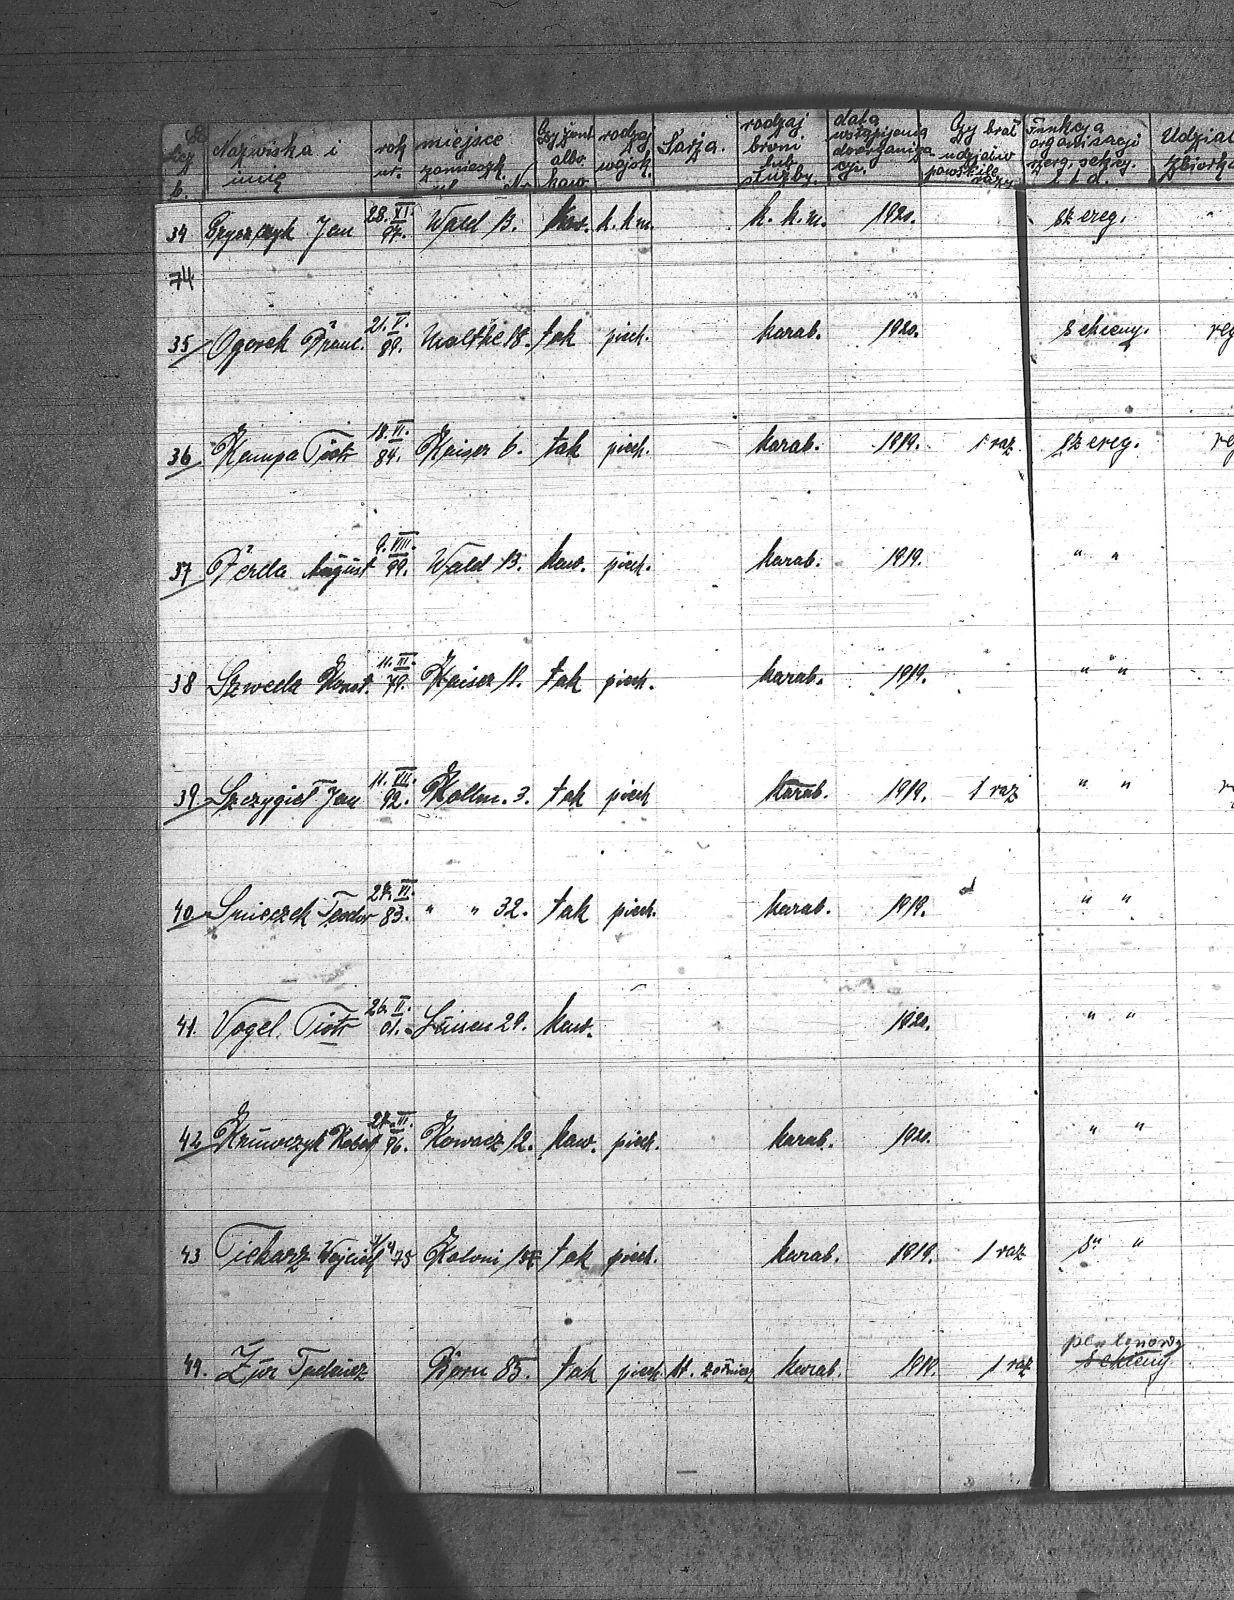 Nazwiska i imię rok ur. miejsce zamieszk. Czy żon. albo kaw. rodzaj wojsk. Sarja. rodzaj broni lub służby. data wstąpienia do organizacyi. Czy brał udział w powst. ile razy Funkcja organizacji szereg. sekcy. i t. d. Udział
34 Jan 28. XI. 97. Wald 13. kaw. k. k. m. k. k. m. 1920. szereg.
74
35 Ogorek Franc. 21. V. 89. Moltke 18. tak piech. karab. 1920. sekcyny.
36 Kempa Piotr 18. VI. 84. Kaiser 6. tak piech. karab. 1919. 1 raz szereg.
37 Ferda August 9. VIII. 99. Wald 13. kaw. piech. karab. 1919. " "
38 Szweda Konst. 11. III. 79. Kaiser 11. tak piech. karab. 1919. " "
39 Szczygieł Jan 11. VII. 92. Kollm. 3. tak piech karab. 1919. 1 raz " "
40 Smieczek Teodor 27. VI. 83. " " 32. tak piech. karab. 1919. " "
41. Vogel Piotr 26. II. 01. Luisen 29. kaw. 1920. " "
42 Krawczyk Robert 27. III. 96. Kowacz 12. kaw. piech. karab. 1920. " "
43 Piekarz Wojciech 78 Koloni tak piech. karab. 1919. 1 raz " "
44. Żur Tadeusz Dorn 85. tak piech. st. żołnierz karab. 1919. 1 raz plutonowy sekcyny